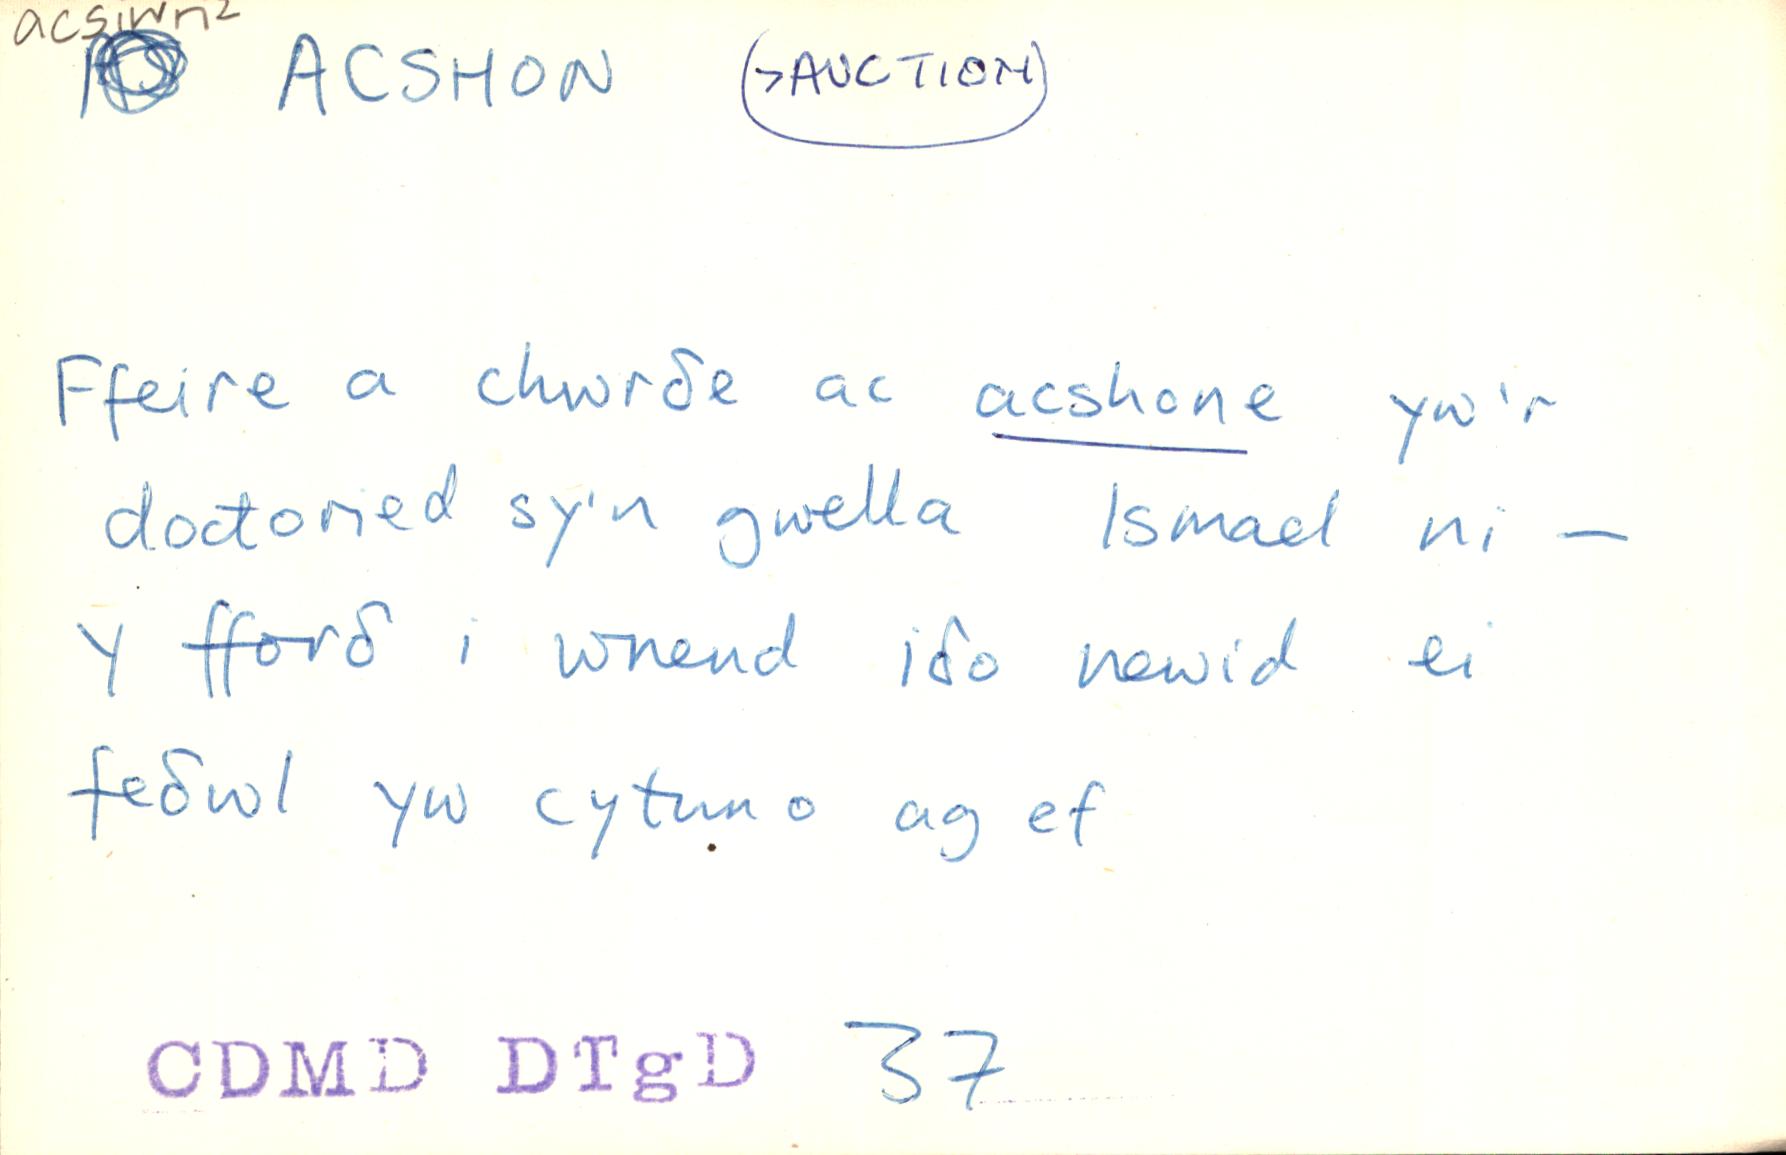 acsiwn²
ACSHON (>AUCTION)
Ffeire a chwrδe ac acshone yw'r
doctoried sy'n gwella Ismael ni —
y fforδ i wneud iδo newid ei
feδwl yw cytuno ag ef
CDMD DTgD 37